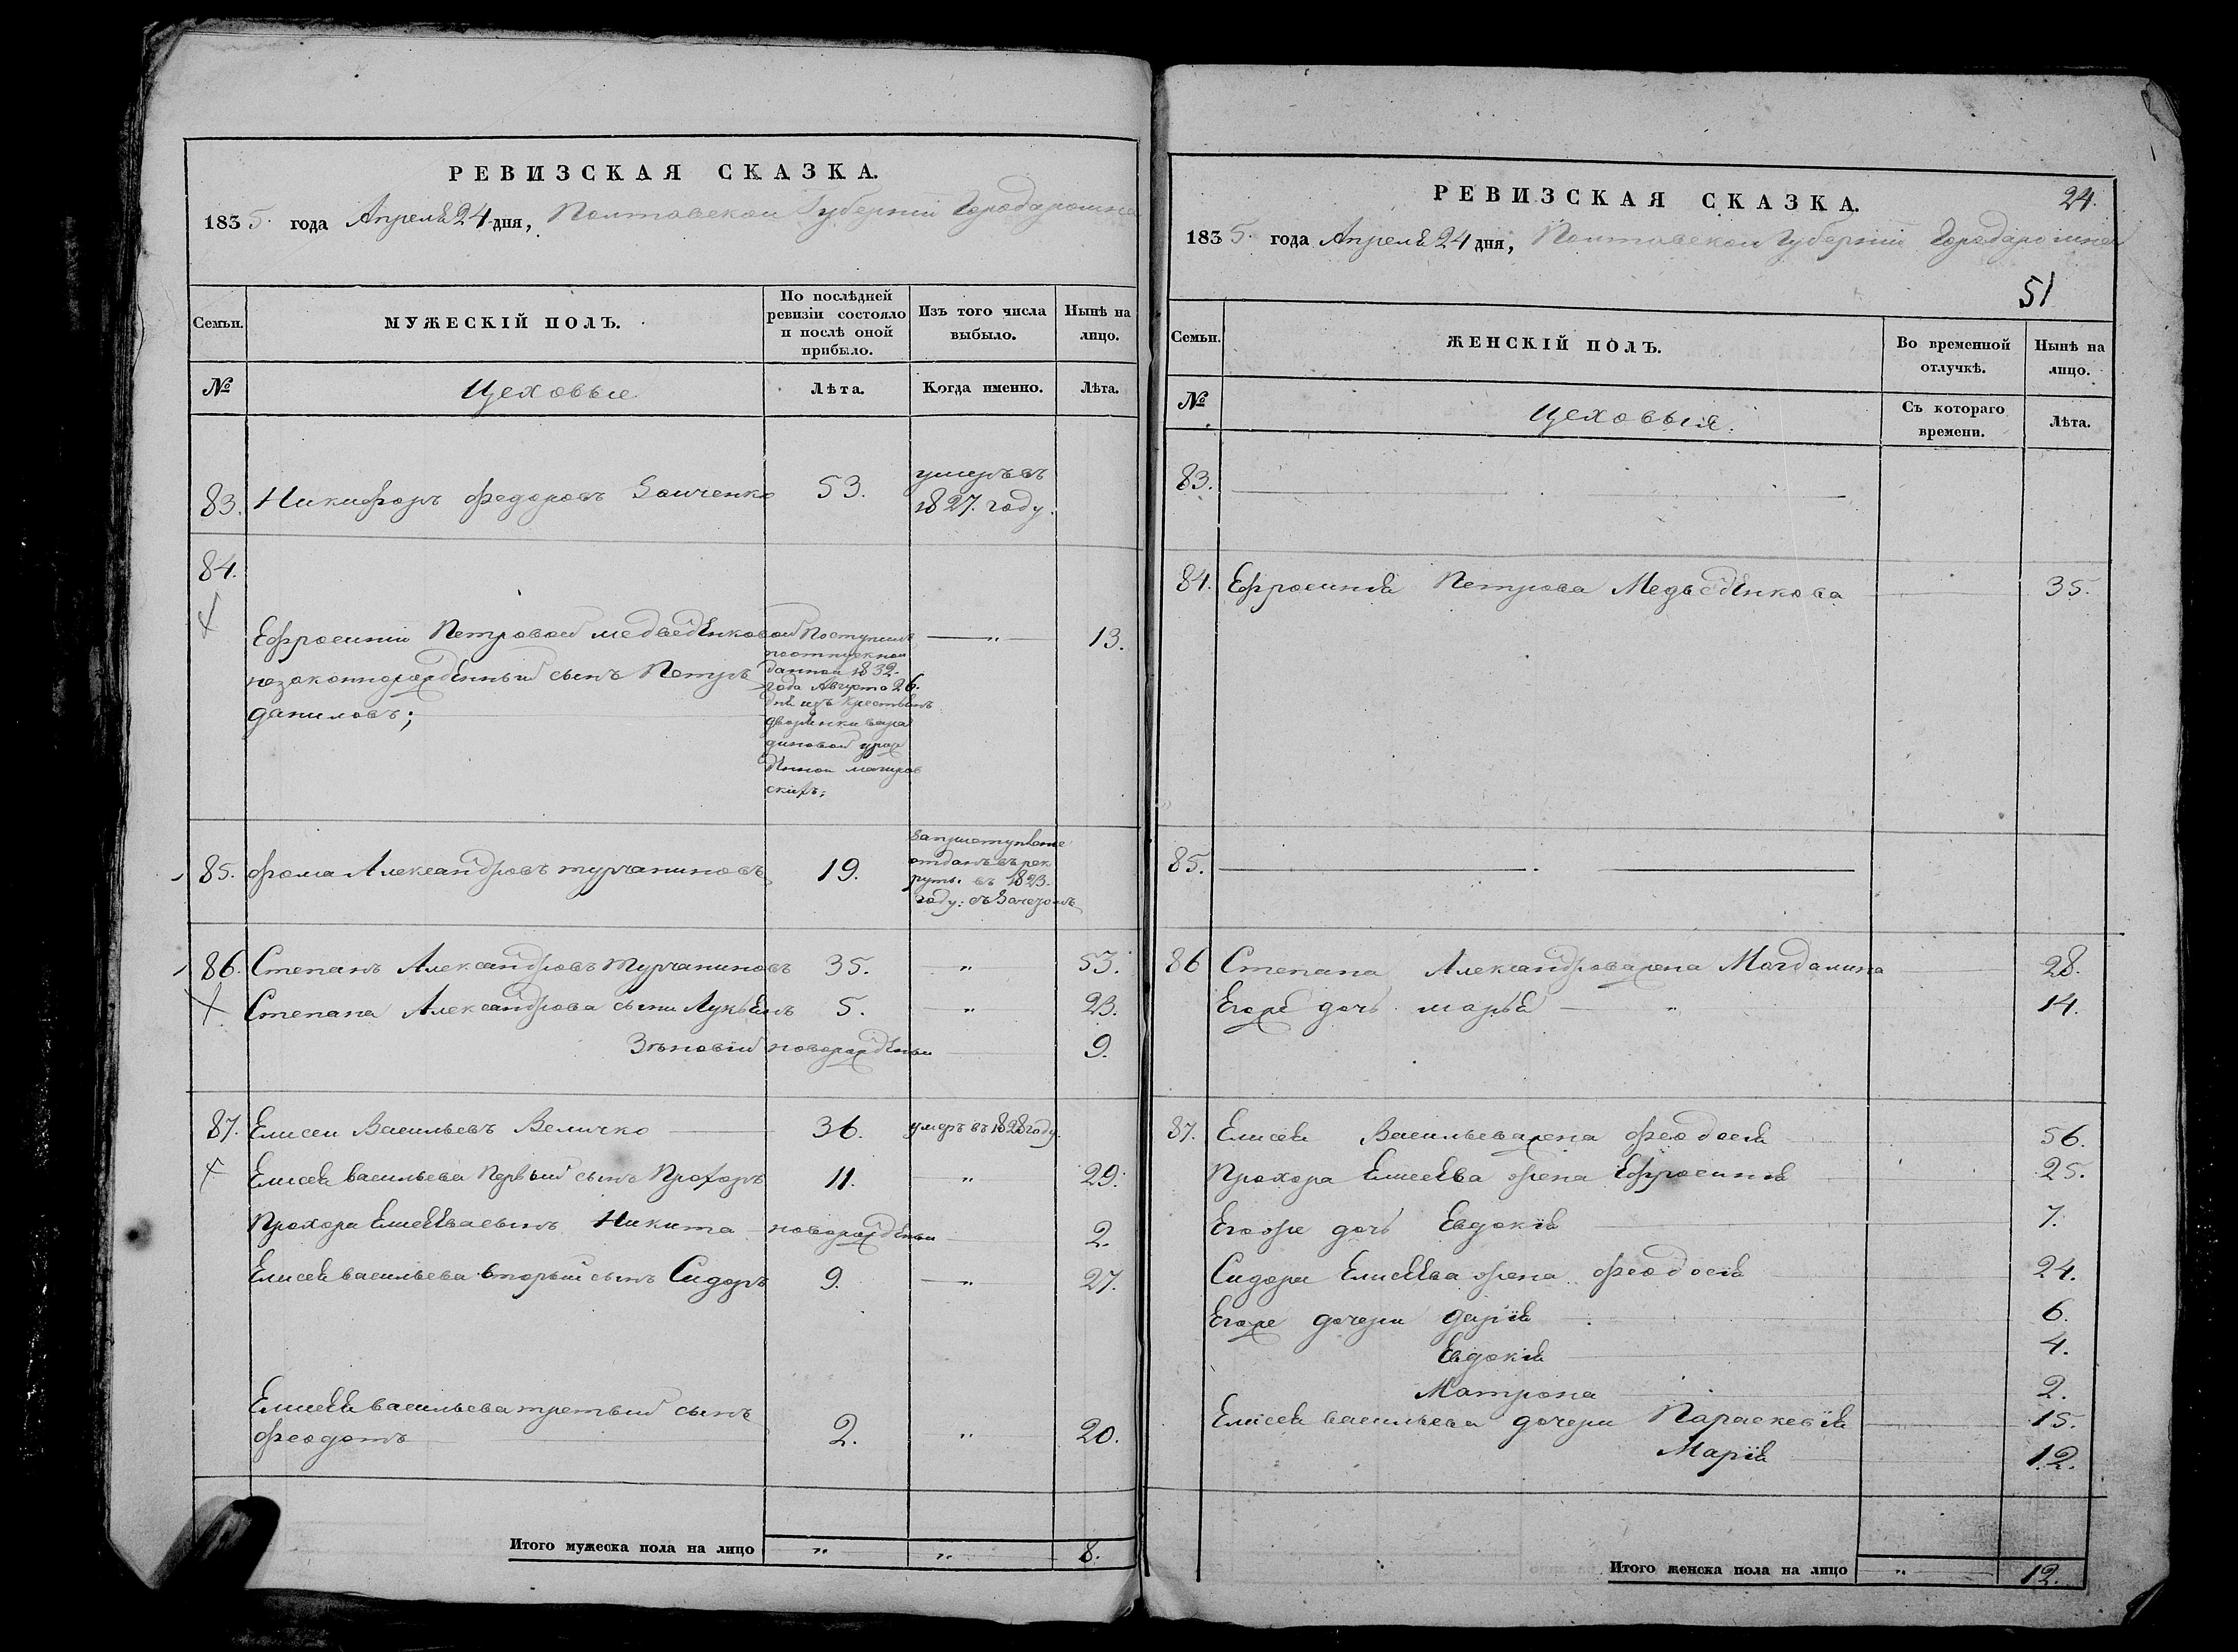 РЕВИЗСКАЯ СКАЗКА.
1835. года Апреля 24 дня, Полтавской Губернии Города
Семьи.
МУЖЕСКІЙ ПОЛЪ.
По послѣдней ревизіи состояло и послѣ оной прибыло.
Изъ того числа выбыло.
Нынѣ на лицо.
№
Цеховые
Лѣта.
Когда именно.
Лѣта.
83. Никифоръ Федоровъ Заиченко 53. умеръ въ
1827. году.
84.
Ефросиніи Петровой Медведѣнковой Поступилъ 13.
незаконнорожденный сынъ Петръ
Даниловъ;
поотпускной
данной 1832.
года Августа 26.
дня изъ крестьянъ
дворянки
85. Фома Александровъ Турчаниновъ 19.
отданъ въ рек
руты. въ 1823.
году: съ Зачетомъ
86. Степанъ Александровъ Турчаниновъ 35. „ 53.
Степана Александрова сыни Лукьянъ 5. „ 23.
Зѣновій новорожденъ 9.
87. Елисей Васильевъ Величко 36. умеръ въ 1828 году.
Елисея Васильева Первый сынъ Прохоръ 11. „ 29.
Прохора Елисеева сынъ Никита новорожденъ 2.
Елисея Васильева Вторый сынъ Сидоръ 9. „ 27.
Елисея Васильева третый сынъ
Феодотъ 2. „ 20.
Итого мужеска пола на лицо „ „ 8.
РЕВИЗСКАЯ СКАЗКА.
24.
1835. года Апреля 24 дня, Полтавской Губерніи Города
51
Семьи.
ЖЕНСКІЙ ПОЛЪ.
Во временной отлучкѣ.
Нынѣ на лицо.
№
Цеховыя.
Съ котораго времени.
Лѣта.
83.
84. Ефросинія Петрова Медведѣнкова 35.
85.
86 Степана Александрова жена Магдалина 28.
Егоже дочь марья „ 14.
87. Елисея Васильева жена Феодосія 56.
Прохора Елисеева жена Ефросинія 25.
Егоже дочь Евдокія 7.
Сидора Елисеева жена Феодосія 24.
Егоже дочери Дарія 6.
Евдокія 4.
Матрона 2.
Елисея Васильева дочери Параскевія 15.
Марія 12.
Итого женска пола на лицо „ 12.